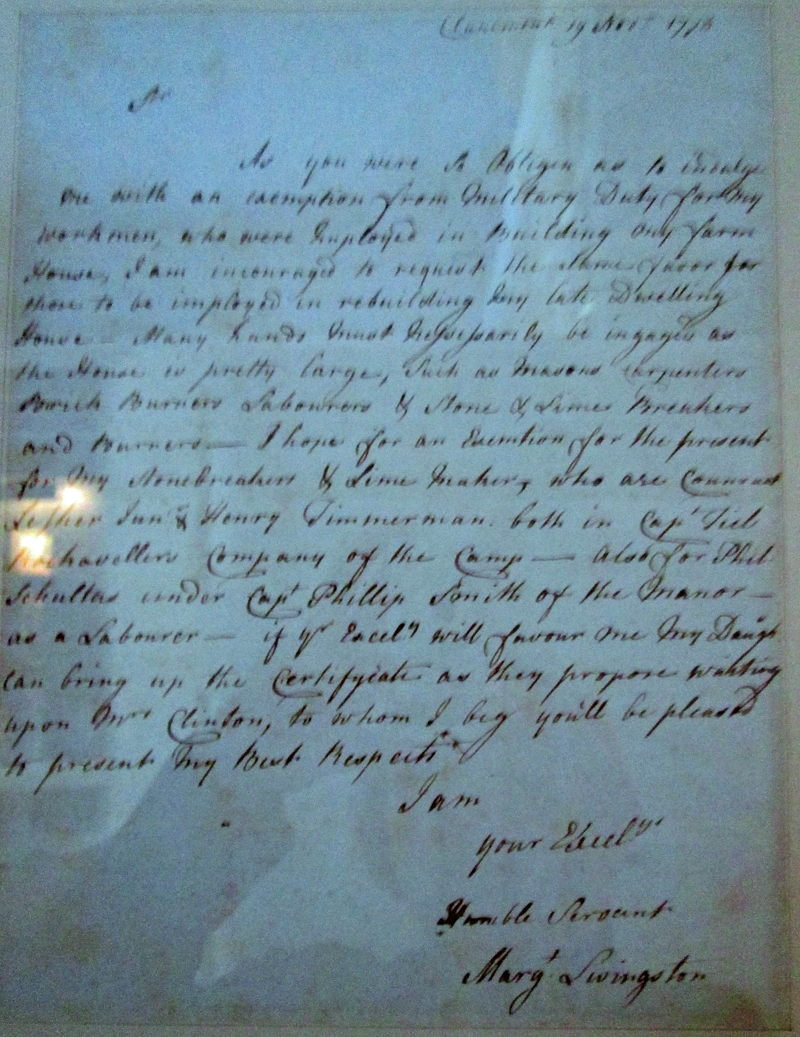 Claremont 19 Novr 1778
Sir
As you were so Obligen as to indulge
me with an exemption from Military Duty for My
workmen, who were Imployed in Building My farm
House, I am incouraged to request the same favor for
those to be imployed in rebuilding My late Dwelling
House — Many hands Must Nessessarily be ingaged as
the House is pretty large, Such as Masons Carpenters
Brick Burners Labourers & Stone & Limes Breakers
and Burners — I hope for an Exemtion for the present
for My Stonebreakers & Lime Maker, who are Counrad
Lesher Junr & Henry Timmerman. both in Capt Tiel
Rockavellers Company of the Camp — also for Phil
Schultas under Capt Phillip Smith of the Manor —
as a Labourer — if yr Excely will favour me My Daugh
can bring up the Certifycate as they propose waiting
upon Mrs Clinton, to whom I beg you'll be pleased
to present My Best Respects
I am
your Excelys
Humble Servant
Margt Livingston